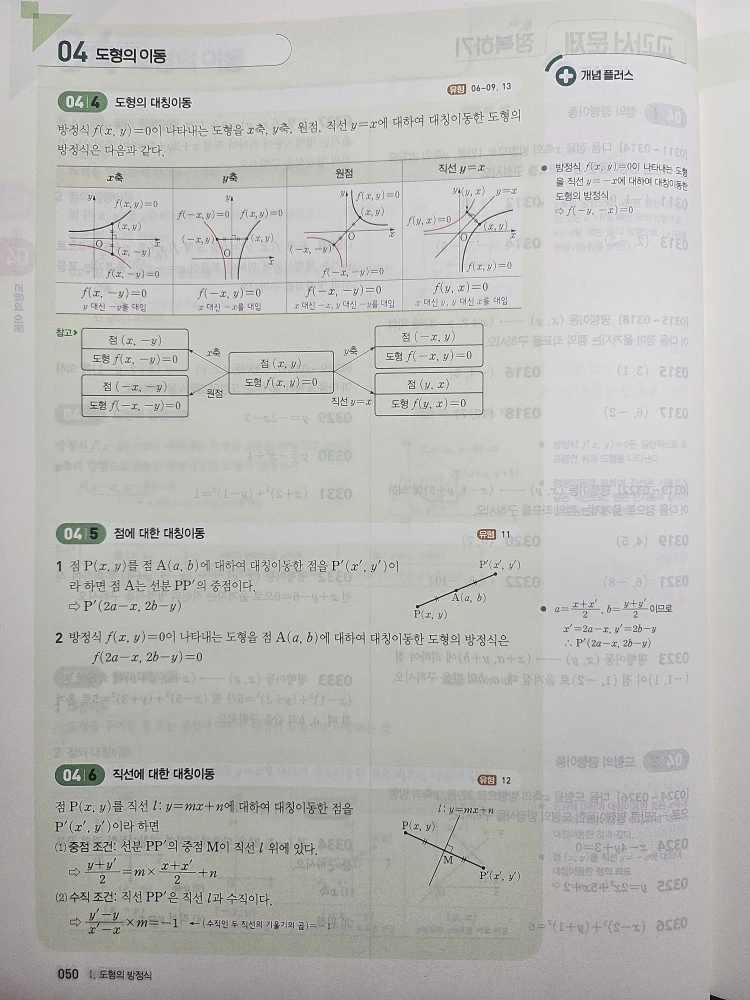 04 도형의 이동
개념 플러스
04 4 도형의 대칭이동
유형 06-09, 13
방정식 f(x, y)=0이 나타내는 도형을 x축, y축, 원점, 직선 y=x에 대하여 대칭이동한 도형의
방정식은 다음과 같다.
x축 y축 원점 직선 y=x
f(x, y)=0
(x, y)
(x, -y)
f(x, -y)=0
f(-x, y)=0 f(x, y)=0
(-x, y) (x, y)
f(x, y)=0
(x, y)
(-x, -y)
f(-x, -y)=0
(y, x) y=x
f(y, x)=0
(x, y)
f(x, y)=0
f(x, -y)=0 f(-x, y)=0 f(-x, -y)=0 f(y, x)=0
y 대신 -y를 대입 x 대신 -x를 대입 x 대신 -x, y 대신 -y를 대입 x 대신 y, y 대신 x를 대입
방정식 f(x, y)=0이 나타내는 도형
을 직선 y=-x에 대하여 대칭이동한
도형의 방정식
⇨ f(-y, -x)=0
참고
점 (x, -y)
도형 f(x, -y)=0
점 (-x, -y)
도형 f(-x, -y)=0
x축
원점
점 (x, y)
도형 f(x, y)=0
y축
직선 y=x
점 (-x, y)
도형 f(-x, y)=0
점 (y, x)
도형 f(y, x)=0
04 5 점에 대한 대칭이동
유형 11
1 점 P(x, y)를 점 A(a, b)에 대하여 대칭이동한 점을 P′(x′, y′)이
라 하면 점 A는 선분 PP′의 중점이다.
⇨ P′(2a-x, 2b-y)
P′(x′, y′)
A(a, b)
P(x, y)
2 방정식 f(x, y)=0이 나타내는 도형을 점 A(a, b)에 대하여 대칭이동한 도형의 방정식은
f(2a-x, 2b-y)=0
a=(x+x′)/2, b=(y+y′)/2이므로
x′=2a-x, y′=2b-y
∴ P′(2a-x, 2b-y)
04 6 직선에 대한 대칭이동
유형 12
점 P(x, y)를 직선 l: y=mx+n에 대하여 대칭이동한 점을
P′(x′, y′)이라 하면
(1) 중점 조건: 선분 PP′의 중점 M이 직선 l 위에 있다.
⇨ (y+y′)/2=m×(x+x′)/2+n
(2) 수직 조건: 직선 PP′은 직선 l과 수직이다.
⇨ (y′-y)/(x′-x)×m=-1 ← (수직인 두 직선의 기울기의 곱)=-1
l: y=mx+n
P(x, y)
M
P′(x′, y′)
050 Ⅰ. 도형의 방정식